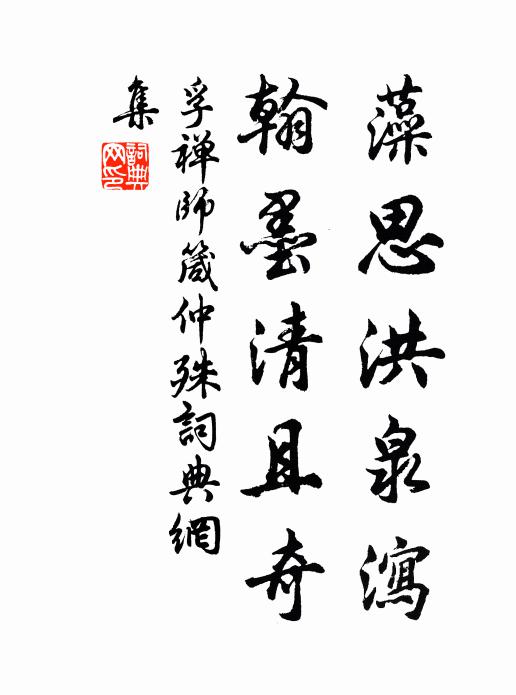 藻思洪泉瀉
翰墨清且奇
孚禅師箴仲殊詞典網
集
詞典网印